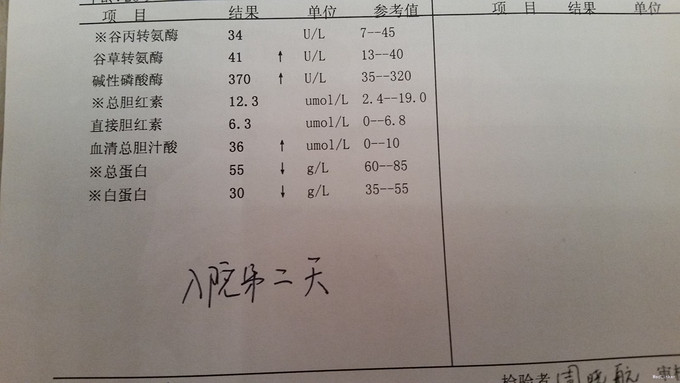 项 目 结果 单位 参考值 项 目 结果 单位
※谷丙转氨酶 34 U/L 7--45
谷草转氨酶 41 ↑ U/L 13--40
碱性磷酸酶 370 ↑ U/L 35--320
※总胆红素 12.3 umol/L 2.4--19.0
直接胆红素 6.3 umol/L 0--6.8
血清总胆汁酸 36 ↑ umol/L 0--10
※总蛋白 55 ↓ g/L 60--85
※白蛋白 30 ↓ g/L 35--55
入院第二天
检验者 周晓航